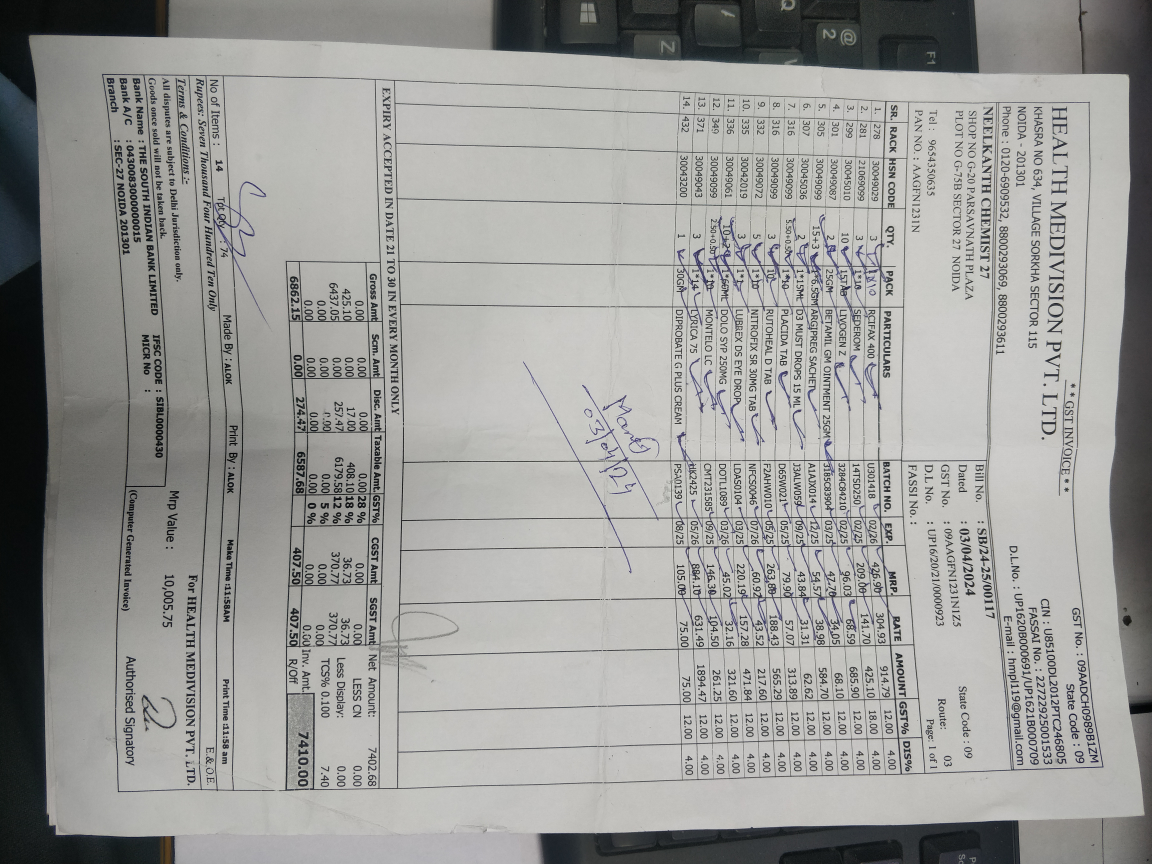 ** GST INVOICE **
HEALTH MEDIVISION PVT. LTD.
KHASRA NO 634, VILLAGE SORKHA SECTOR 115
NOIDA - 201301
Phone : 0120-6909532, 8800293069, 8800293611
GST No. : 09AADCH0989B1ZM
State Code : 09
CIN : U85100DL2012PTC246805
FASSAI No. : 22722925001533
D.L.No. : UP1620B000691/UP1621B000709
E-mail : hmpl119@gmail.com
NEELKANTH CHEMIST 27
SHOP NO G-20 PARSAVNATH PLAZA
PLOT NO G-75B SECTOR 27 NOIDA
Tel : 9654350635
PAN NO. : AAGFN1231N
Bill No. : SB/24-25/00117
Dated : 03/04/2024 State Code : 09
GST No. : 09AAGFN1231N1Z5 Route: 03
D.L No. : UP16/20/21/0000923 Page: 1 of 1
FASSI No. :
SR. RACK HSN CODE QTY. PACK PARTICULARS BATCH NO. EXP. MRP. RATE AMOUNT GST% DIS%
1. 278 30049029 3 1*10 RCIFAX 400 U301418 02/26 426.90 304.93 914.79 12.00 4.00
2. 281 21069099 3 1*10 SEDEROM 14TS0250 02/25 209.00 141.70 425.10 18.00 4.00
3. 299 30045010 10 15TAB LIVOGEN Z 3284C84210 02/25 96.03 68.59 685.90 12.00 4.00
4. 301 30049087 2 25GM BETAMIL GM OINTMENT 25GM 3185C83904 03/25 47.70 34.05 68.10 12.00 4.00
5. 305 30049099 15+3 1*6.5GM ARGIPREG SACHET A1JJX014 12/25 54.57 38.98 584.70 12.00 4.00
6. 307 30045036 2 1*15ML D3 MUST DROPS 15 ML J3ALW059 09/25 43.84 31.31 62.62 12.00 4.00
7. 316 30049099 5.50+0.50 1*10 PLACIDA TAB D6SW021 05/25 79.90 57.07 313.89 12.00 4.00
8. 316 30049099 3 10 RUTOHEAL D TAB F2AHW010 05/25 263.80 188.43 565.29 12.00 4.00
9. 332 30049072 5 1*10 NITROFIX SR 30MG TAB NFCS0046 07/26 60.92 43.52 217.60 12.00 4.00
10. 335 30042019 3 1*1 LUBREX DS EYE DROP LDAS0104 03/25 220.19 157.28 471.84 12.00 4.00
11. 336 30049061 10+2 1*60ML DOLO SYP 250MG DOTL1089 03/26 45.02 32.16 321.60 12.00 4.00
12. 349 30049099 2.50+0.50 1*10 MONTELO LC CMT231585 09/25 146.30 104.50 261.25 12.00 4.00
13. 371 30049043 3 1*14 LYRICA 75 HK2425 05/26 884.10 631.49 1894.47 12.00 4.00
14. 432 30043200 1 30GM DIPROBATE G PLUS CREAM PSA0139 08/25 105.00 75.00 75.00 12.00 4.00
03/04/24
EXPIRY ACCEPTED IN DATE 21 TO 30 IN EVERY MONTH ONLY
Gross Amt Scm. Amt Disc. Amt Taxable Amt. GST% CGST Amt SGST Amt
0.00 0.00 0.00 0.00 28 % 0.00 0.00
425.10 0.00 17.00 408.10 18 % 36.73 36.73
6437.05 0.00 257.47 6179.58 12 % 370.77 370.77
0.00 0.00 0.00 0.00 5 % 0.00 0.00
0.00 0.00 0.00 0.00 0 % 0.00 0.00
6862.15 0.00 274.47 6587.68 407.50 407.50
Net Amount: 7402.68
LESS CN 0.00
Less Display: 0.00
TCS% 0.100 7.40
Inv. Amt. R/Off 7410.00
No of Items : 14 Tot Qty : 74 Made By : ALOK Print By : ALOK Make Time :11:58AM Print Time :11:58 am
Rupees: Seven Thousand Four Hundred Ten Only
E.& O.E.
Terms & Conditions :-
All disputes are subject to Delhi Jurisdiction only.
Goods once sold will not be taken back.
Mrp Value : 10,005.75
For HEALTH MEDIVISION PVT. LTD.
Bank Name : THE SOUTH INDIAN BANK LIMITED IFSC CODE : SIBL0000430
Bank A/C : 0430083000000015 MICR No :
Branch : SEC-27 NOIDA 201301
(Computer Generated Invoice)
Authorised Signatory
F1
@
2
Q
Z